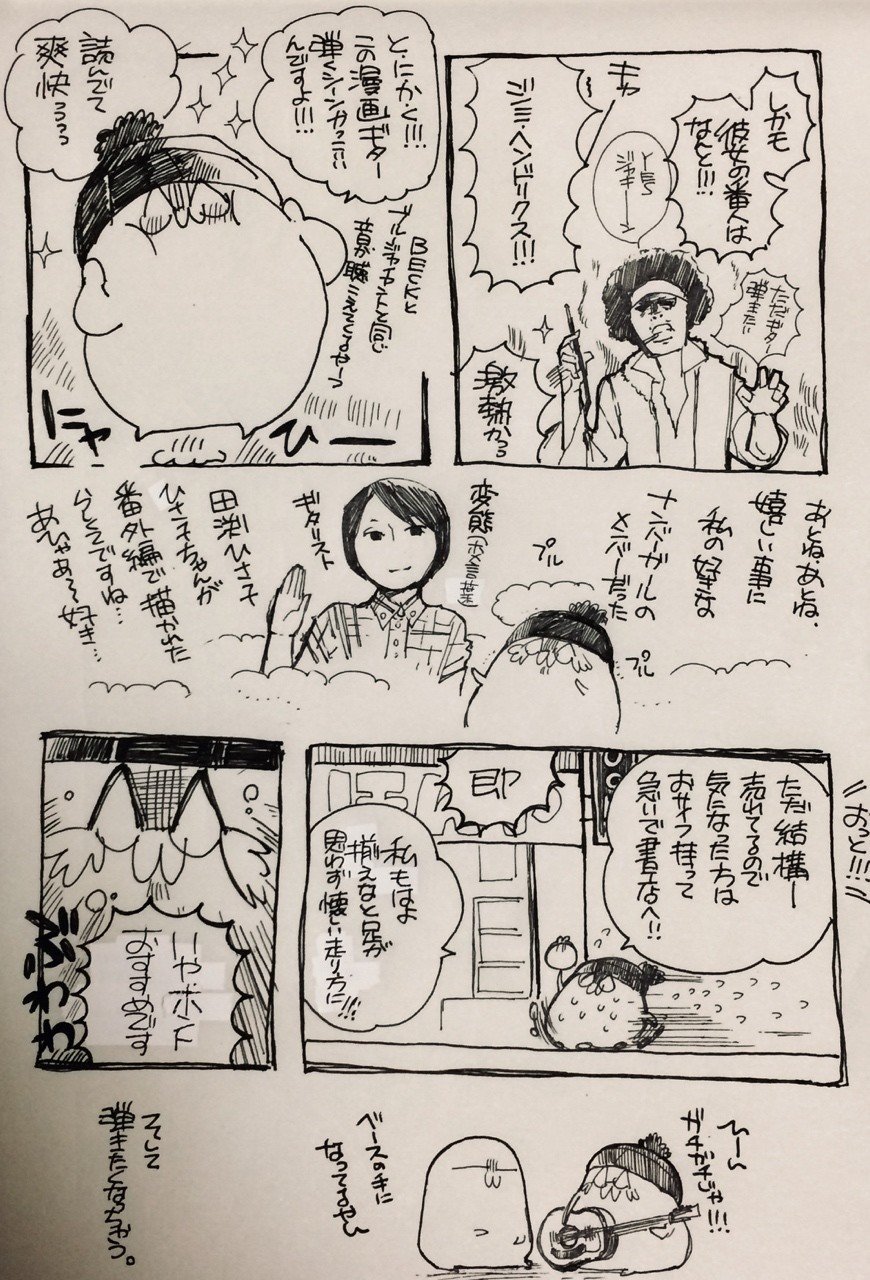 しかも
彼女の番人は
なんと!!!
キャ
ジミ・ヘンドリクス!!!
ただギター
弾きたい
激熱かっ
とにかく!!!
この漫画ギター
弾くシーンがっこいい
んですよ!!!
読んでて
爽快っっっ
BECKと
ブルージャイアントと同じ
音が聴こえてくるやーつ
ひー
あとね、あとね、
嬉しい事に
私の好きな
ナンバーガールの
メンバーだった
プル
プル
変態(ホメ言葉)
ギタリスト
田渕ひさ子
ひさ子ちゃんが
番外編で描かれた
らしいですね…
あひゃあ〜好き…
おっと!!!
ただ結構ー
売れてるので
気になった方は
おサイフ持って
急いで書店へ!!
即
私もはよ
揃えなと足が
思わず懐しい走り方に!!!
いやホント
おすすめです
ひーん
ガチガチじゃ!!!
ベースの手に
なってるやん
そして
弾きたくなっちゃう。